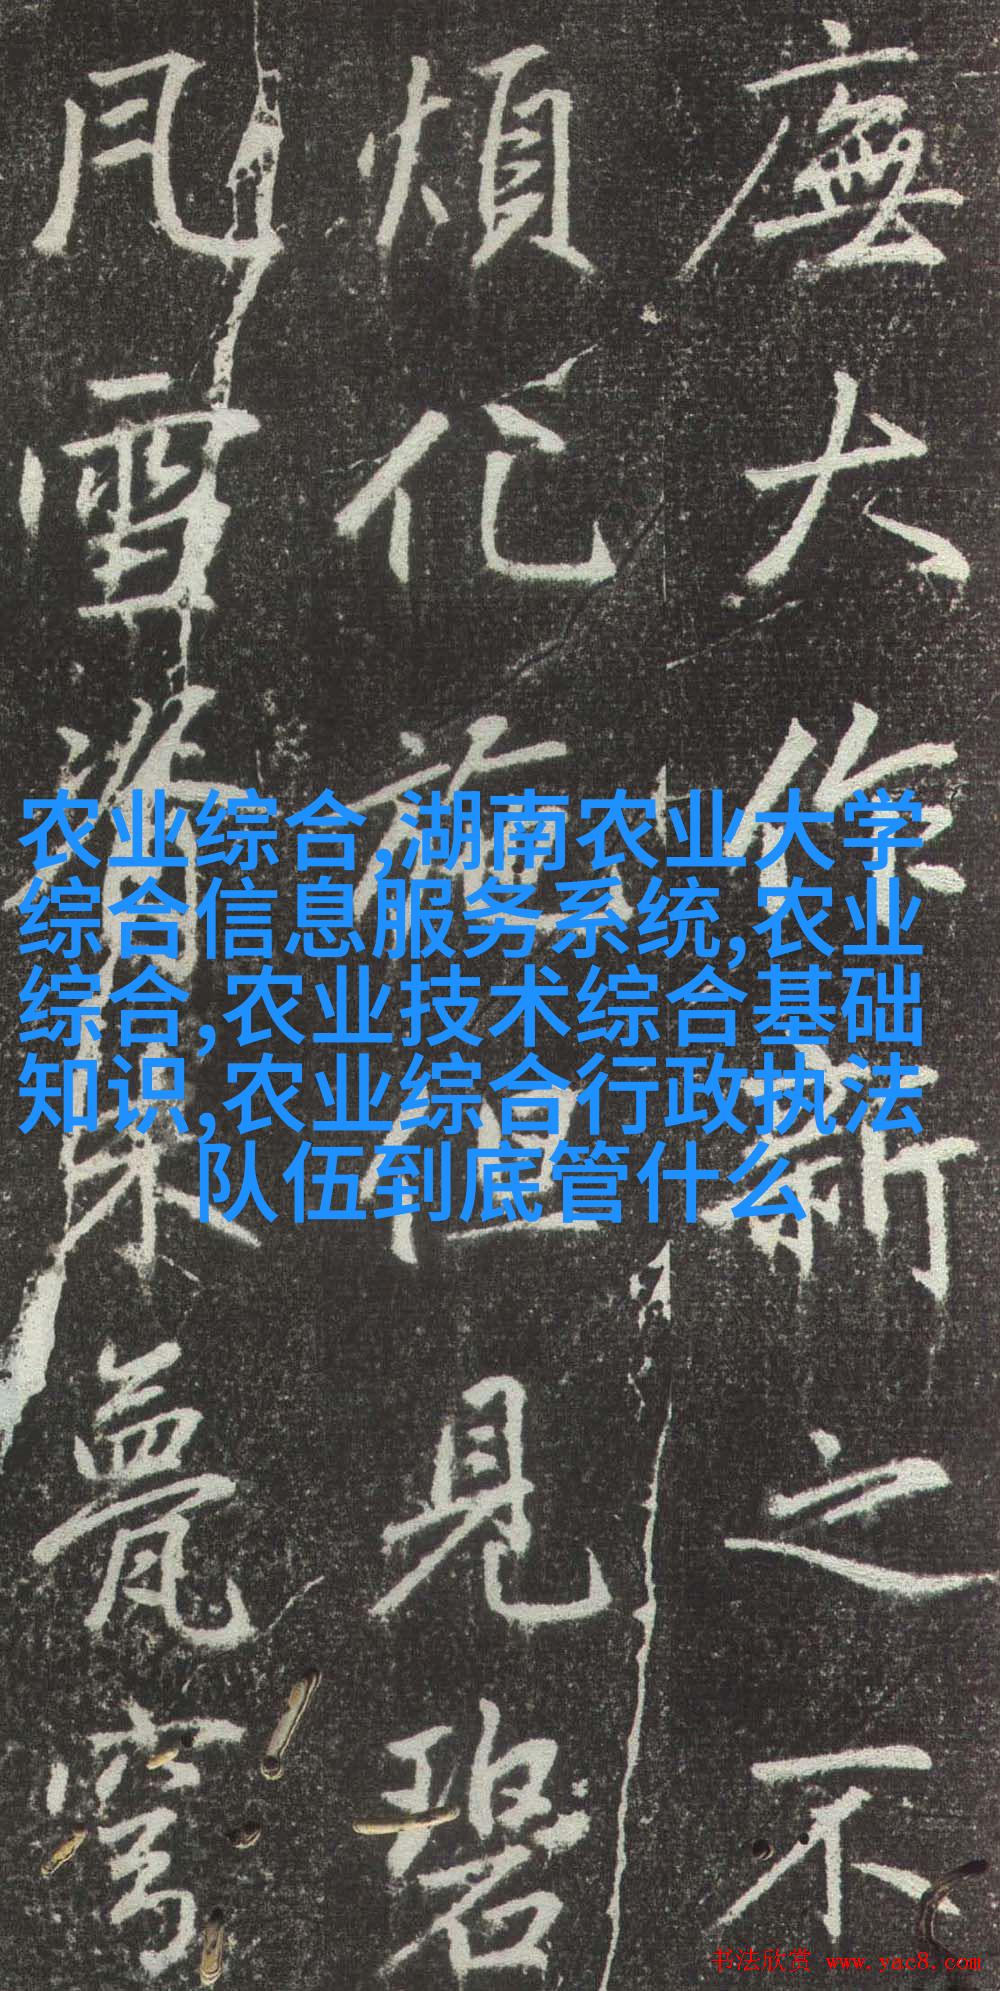 廡大作新之不
煩化
見碧
風雪
甍穹
农业综合,湖南农业大学
综合信息服务系统,农业
综合,农业技术综合基础
知识,农业综合行政执法
队伍到底管什么
书法欣赏 www.yac8.com